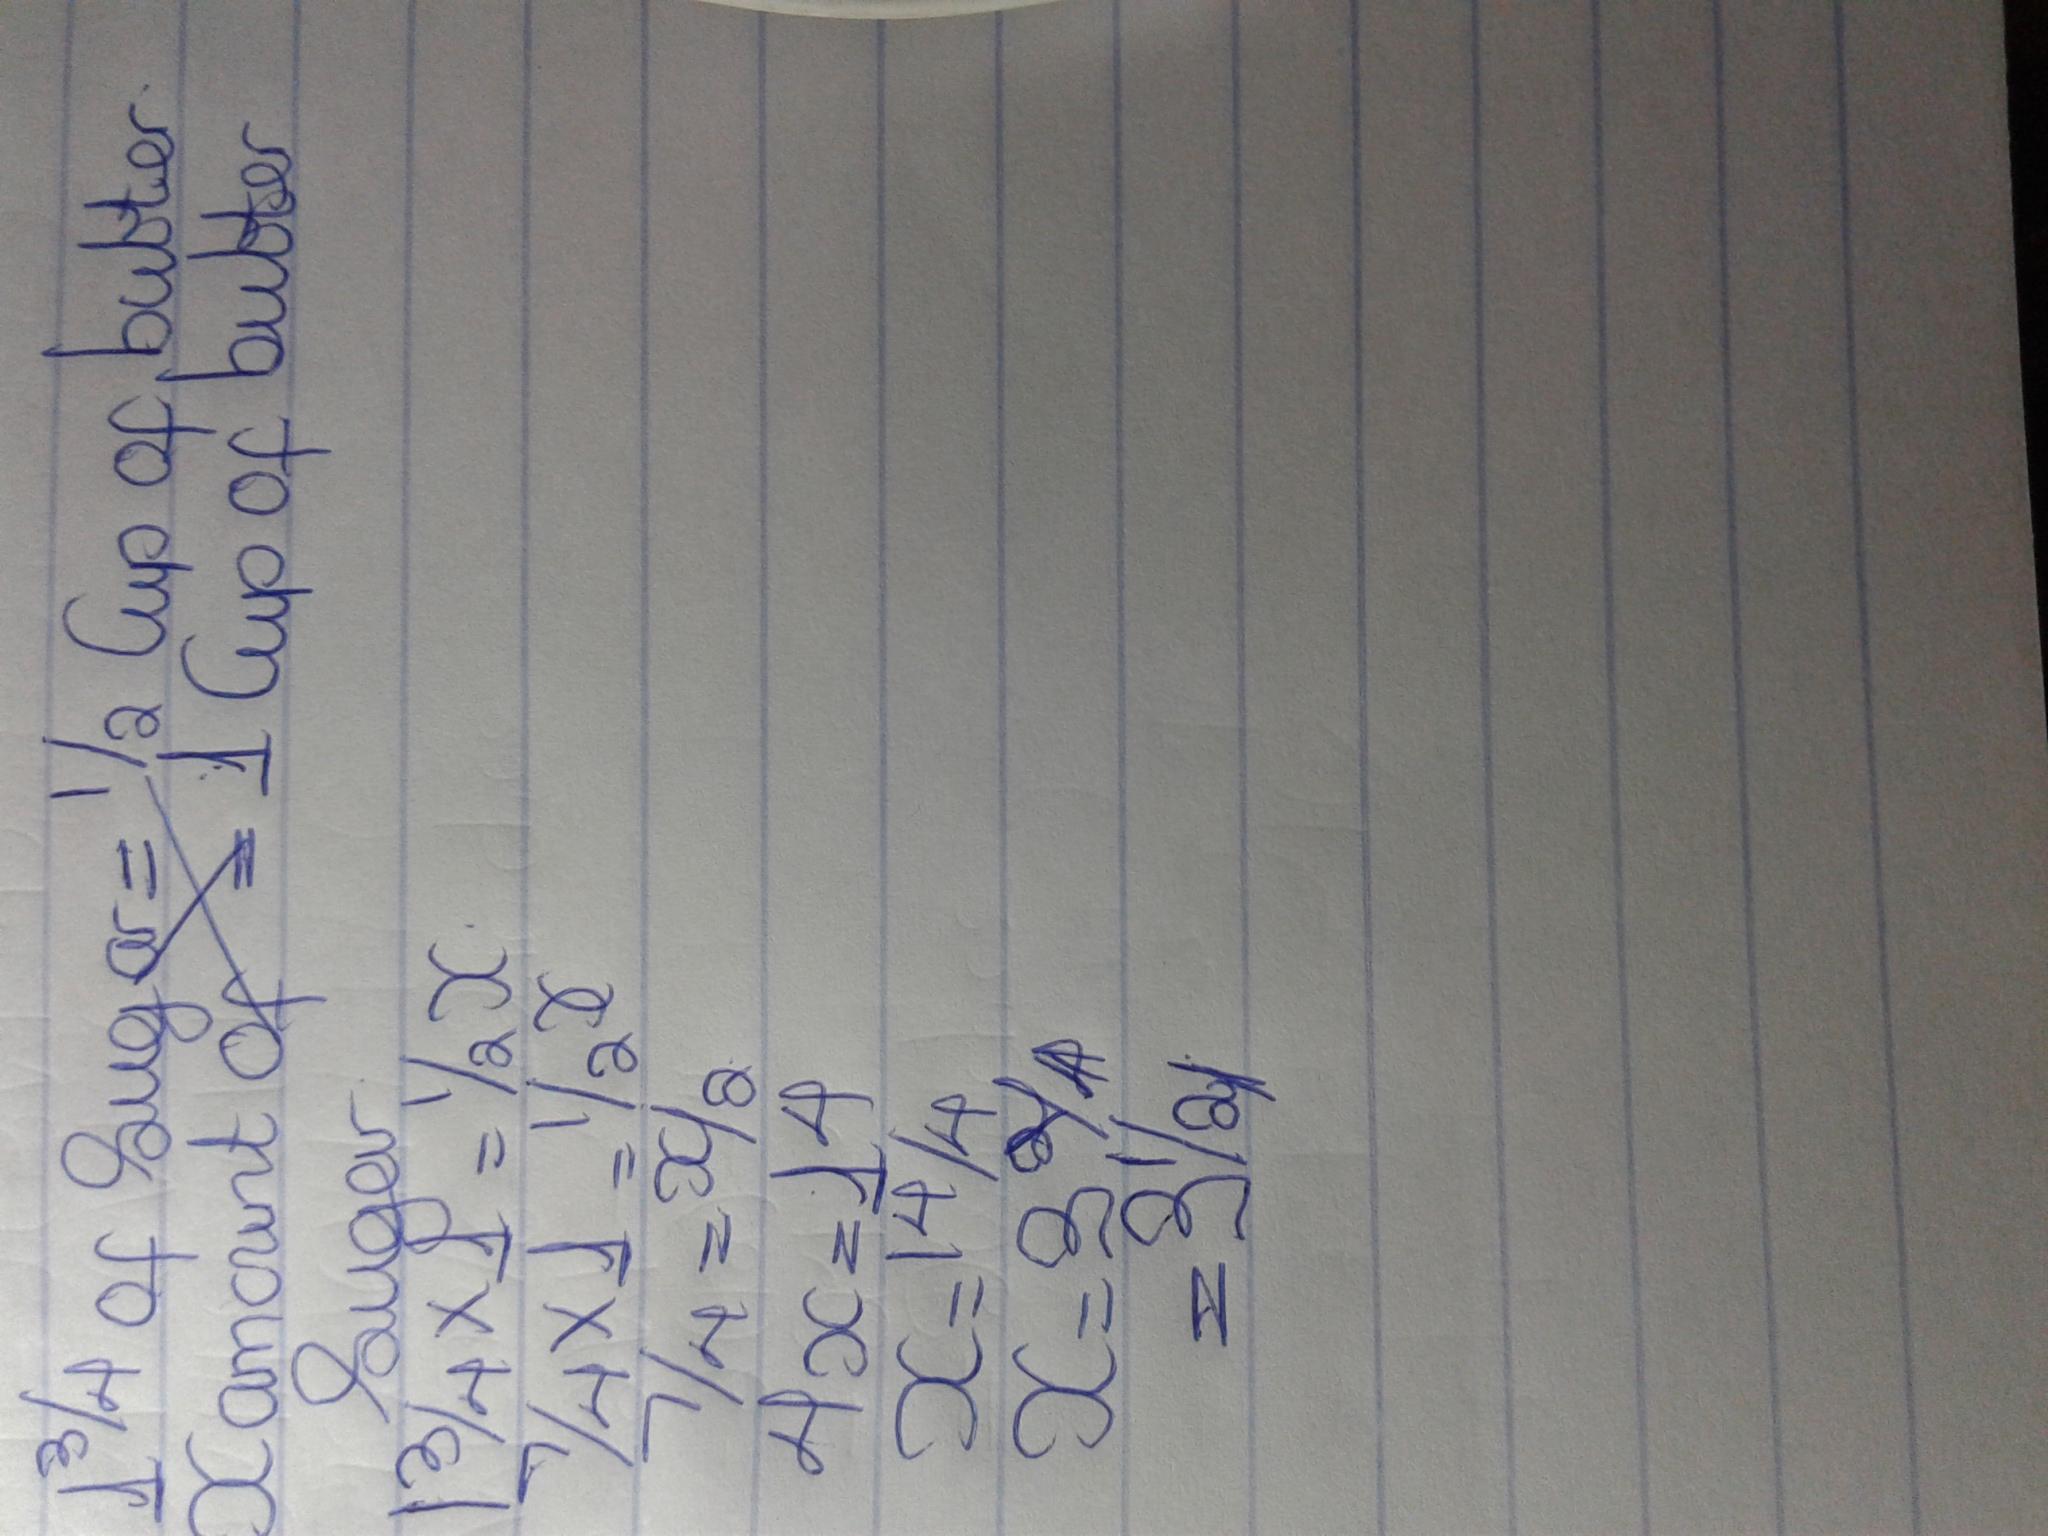 1 3/4 of Sugar = 1/2 Cup of butter.
x amount of = 1 Cup of butter
Suger
1 3/4 x 1 = 1/2 x.
7/4 x 1 = 1/2 x
7/4 = x/2
4x = 14
x = 14/4
x = 3 2/4
= 3 1/2